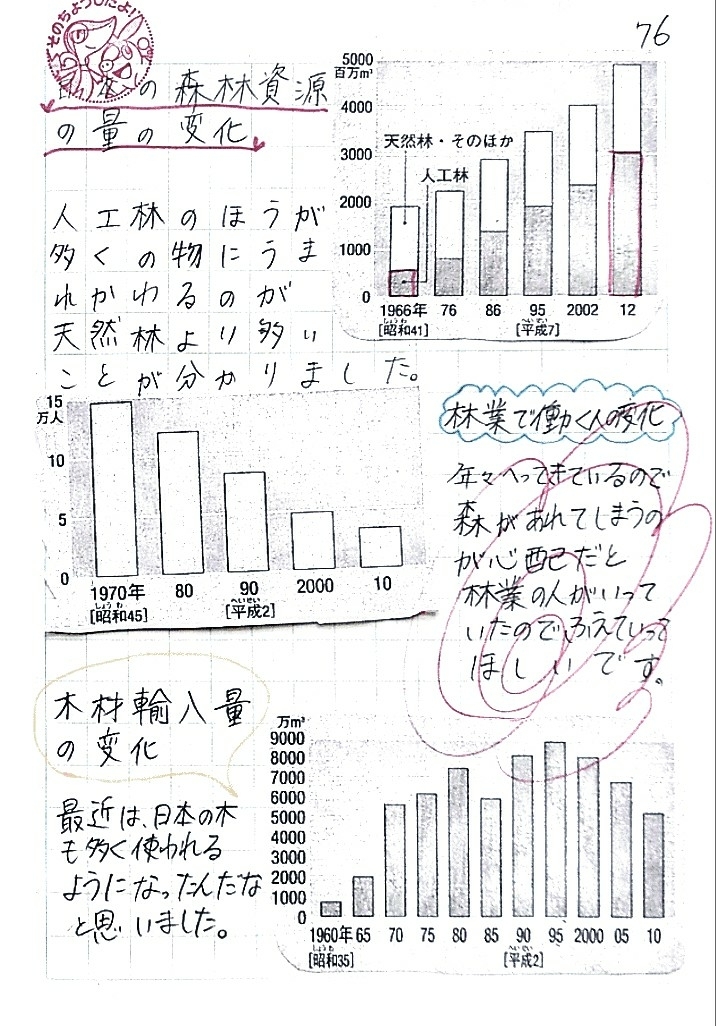 そのちょうしだよ!
76
日本の森林資源
の量の変化
5000
百万m³
4000
3000
2000
1000
0
天然林・そのほか
人工林
1966年 76 86 95 2002 12
しょうわ へいせい
[昭和41] [平成7]
人工林のほうが
多くの物にうま
れかわるのが
天然林より多い
ことが分かりました。
15
万人
10
5
0
1970年 80 90 2000 10
しょうわ へいせい
[昭和45] [平成2]
林業で働く人の変化
年々へってきているので
森があれてしまうの
が心配だと
林業の人がいって
いたのでふえていって
ほしいです。
木材輸入量
の変化
最近は、日本の木
も多く使われる
ようになったんだな
と思いました。
万m³
9000
8000
7000
6000
5000
4000
3000
2000
1000
0
1960年 65 70 75 80 85 90 95 2000 05 10
しょうわ へいせい
[昭和35] [平成2]